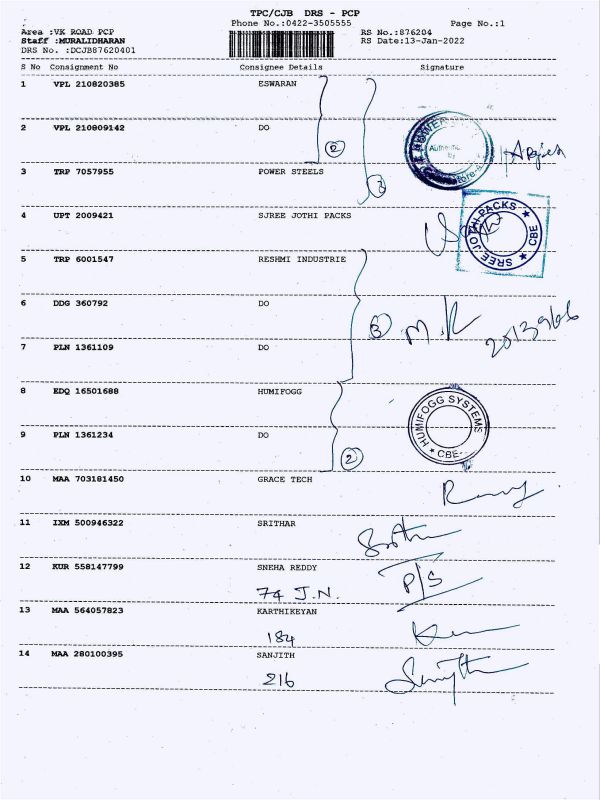 TPC/CJB DRS - PCP
Phone No.:0422-3505555 Page No.:1
Area :VK ROAD PCP RS No.:876204
Staff :MURALIDHARAN RS Date:13-Jan-2022
DRS No. :DCJB87620401
S No Consignment No Consignee Details Signature
1 VPL 210820385 ESWARAN
2 VPL 210809142 DO
2
3 TRP 7057955 POWER STEELS
3
4 UPT 2009421 SJREE JOTHI PACKS
SREE JOTHI PACKS ★ CBE ★
5 TRP 6001547 RESHMI INDUSTRIE
6 DDG 360792 DO
3 M.K
7 PLN 1361109 DO
8 EDQ 16501688 HUMIFOGG
HUMIFOGG SYSTEMS ★ CBE
9 PLN 1361234 DO
2
10 MAA 703181450 GRACE TECH
11 IXM 500946322 SRITHAR
12 KUR 558147799 SNEHA REDDY
74 J.N. P/S
13 MAA 564057823 KARTHIKEYAN
184
14 MAA 280100395 SANJITH
216